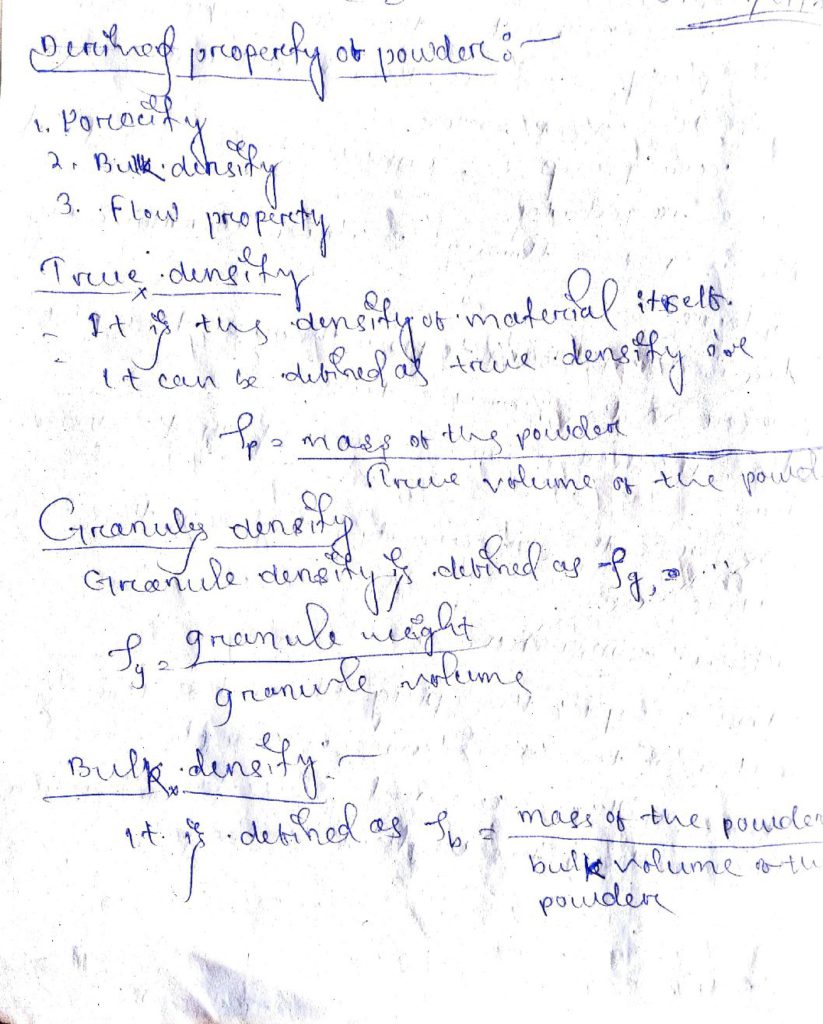 Derived property of powder :-
1. Porocity
2. Bulk density
3. Flow property
True density
- It is the density of material itself.
- It can be defined as true density i.e
ρp = mass of the powder
True volume of the powd
Granule density
Granule density is defined as ρg, = ...
ρg = granule weight
granule volume
Bulk density :-
It is defined as ρb = mass of the powder
bulk volume of the
powder